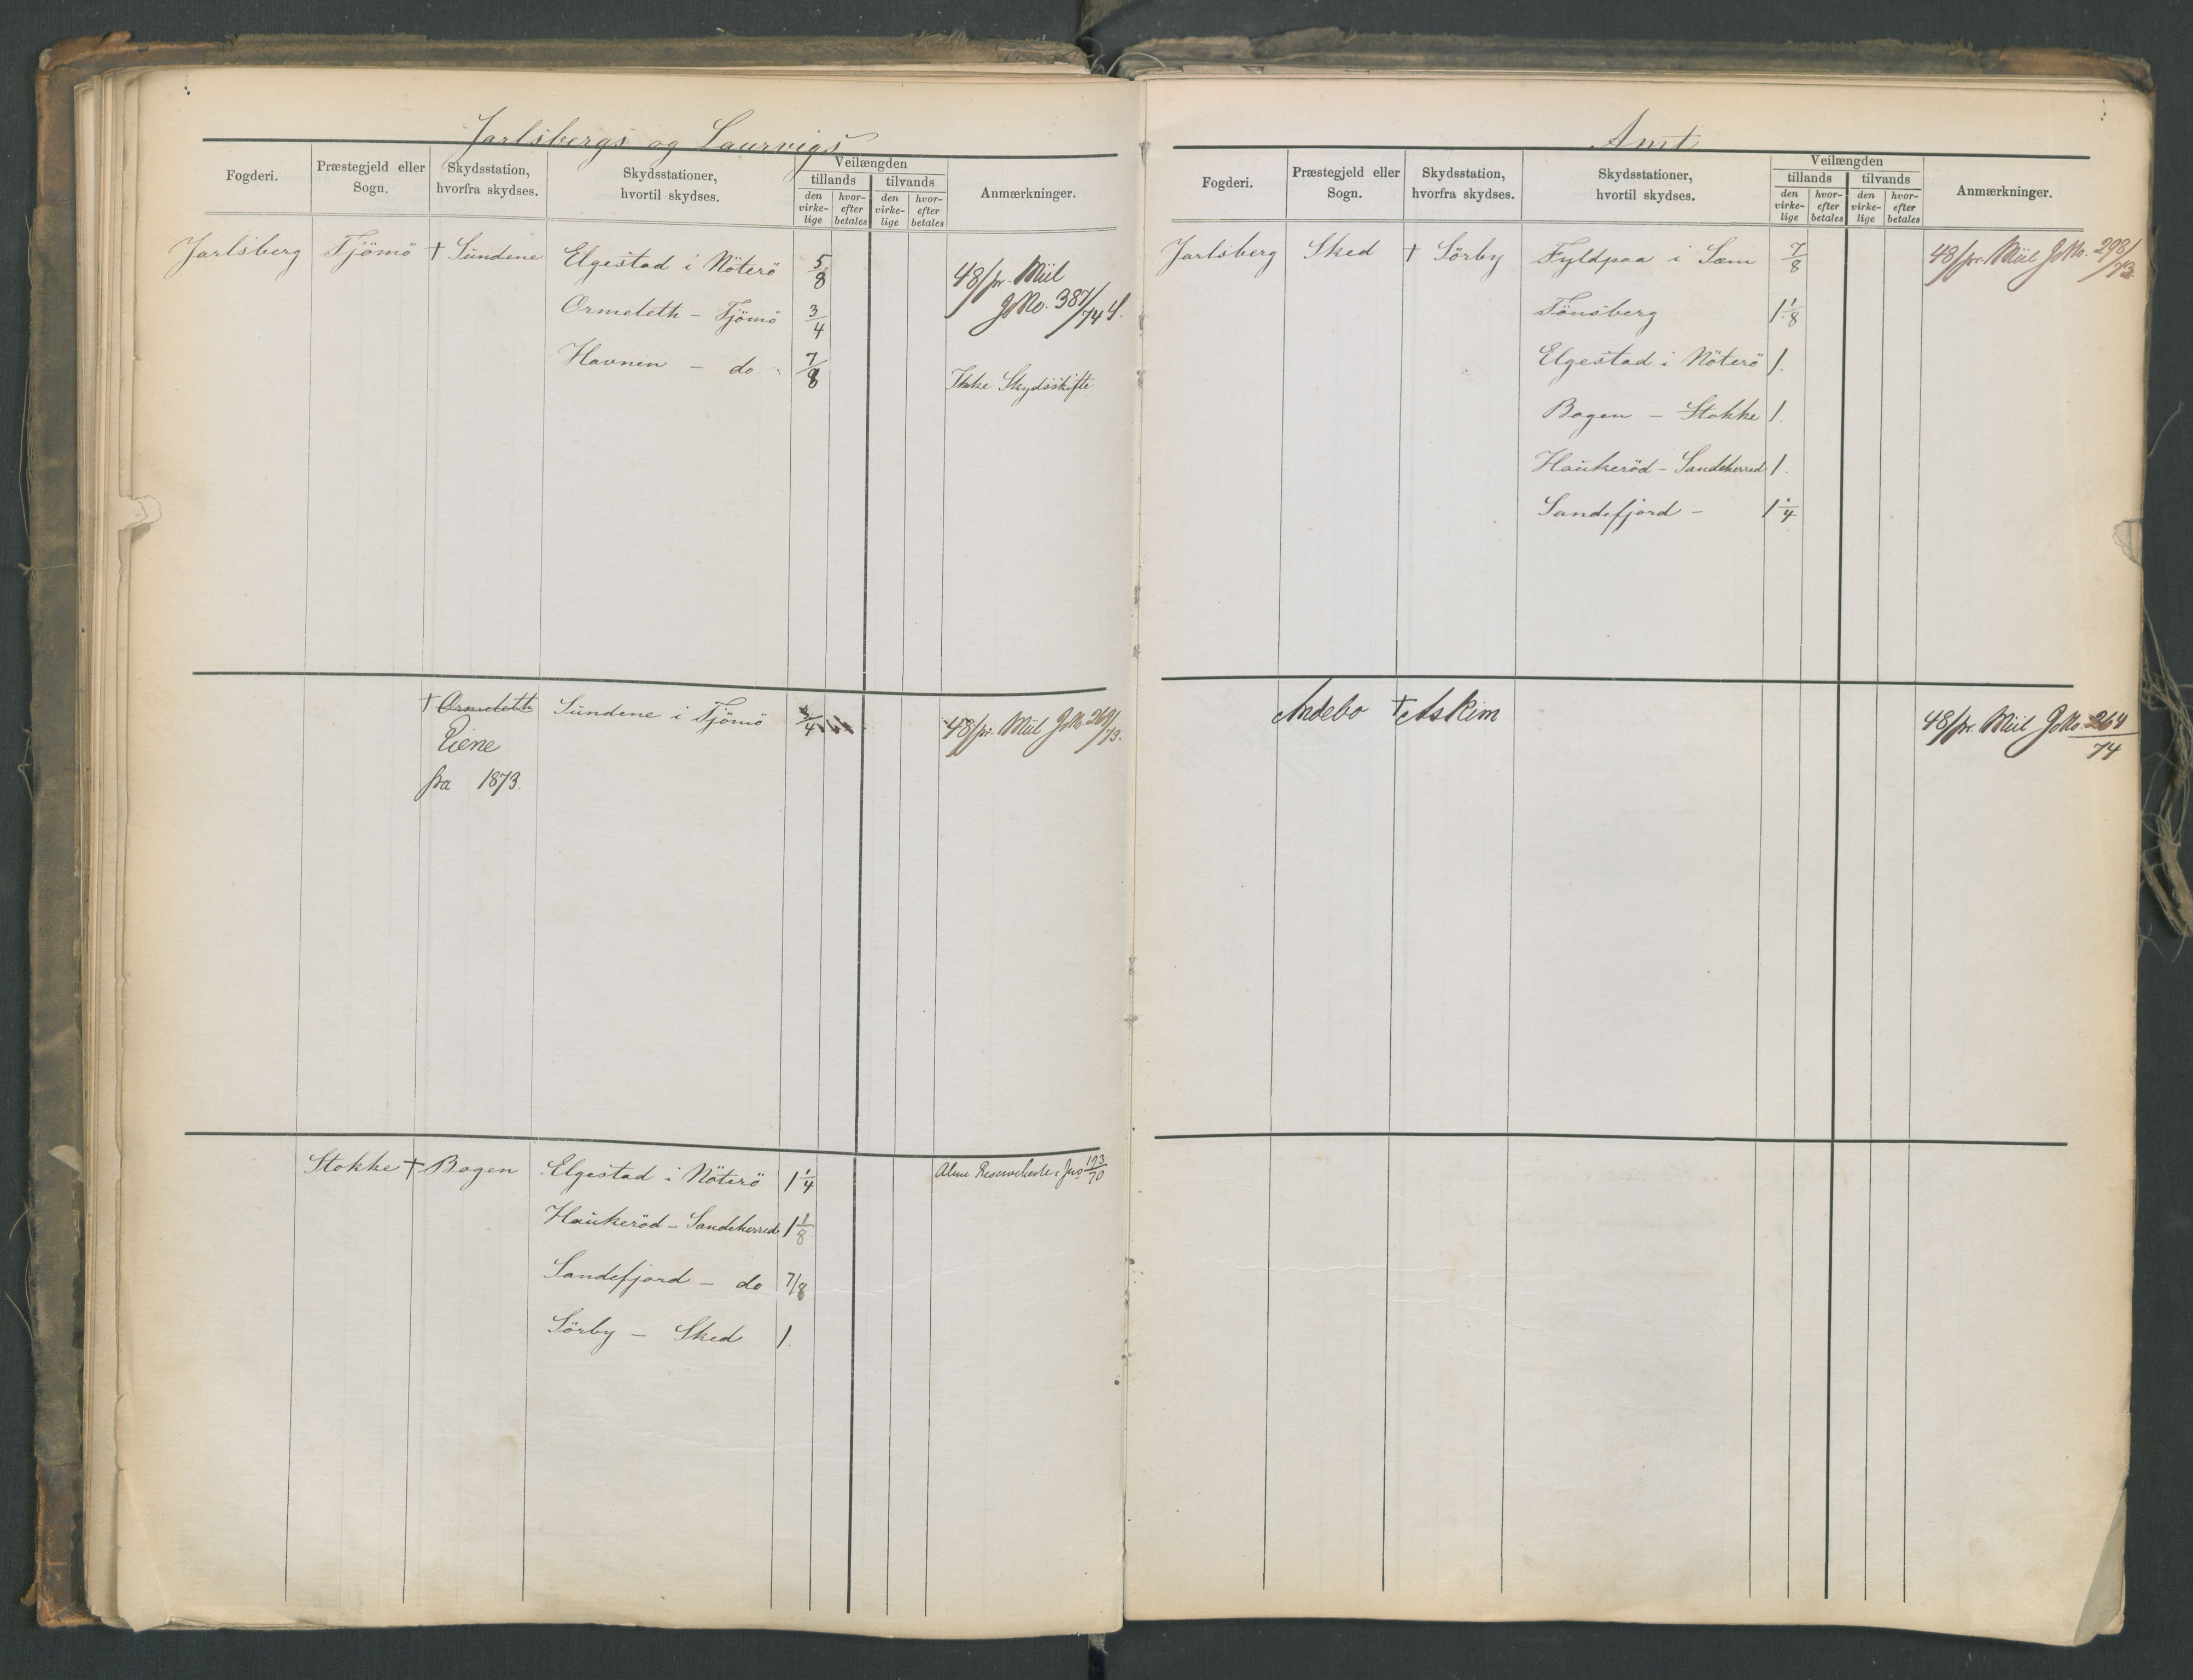 Jarlsbergs og Laurvigs
Fogderi. Præstegjeld eller Sogn. Skydsstation, hvorfra skydses. Skydsstationer, hvortil skydses. Veilængden tillands tilvands den virke-lige hvor-efter betales den virke-lige hvor-efter betales Anmærkninger.
Jarlsberg Tjömö † Sundene Elgestad i Nöterö 5/8 48/pr. Miil
JNo. 387/74
Ormeleth - Tjömö 3/4
Havnen - do 7/8 Ikke Skydsskifte
† Ormeleth Sundene i Tjömö 3/4 48/pr. Miil JNo 269/73.
Eiene
fra 1873.
Stokke † Bogen Elgestad i Nöterö 1 1/4 Reserveheste Jno 193/70
Haukeröd - Sandeherred 1 1/8
Sandefjord - do 7/8
Sörby - Sked 1.
Amt
Fogderi. Præstegjeld eller Sogn. Skydsstation, hvorfra skydses. Skydsstationer, hvortil skydses. Veilængden tillands tilvands den virke-lige hvor-efter betales den virke-lige hvor-efter betales Anmærkninger.
Jarlsberg Sked † Sörby Fyldpaa i Sem 7/8 48/pr. Miil JNo. 298/73
Tönsberg 1 1/8
Elgestad i Nöterö 1.
Bogen - Stokke 1.
Haukeröd - Sandeherred 1.
Sandefjord - 1 1/4
Andebo † Askim 48/pr. Miil JNo 264/74